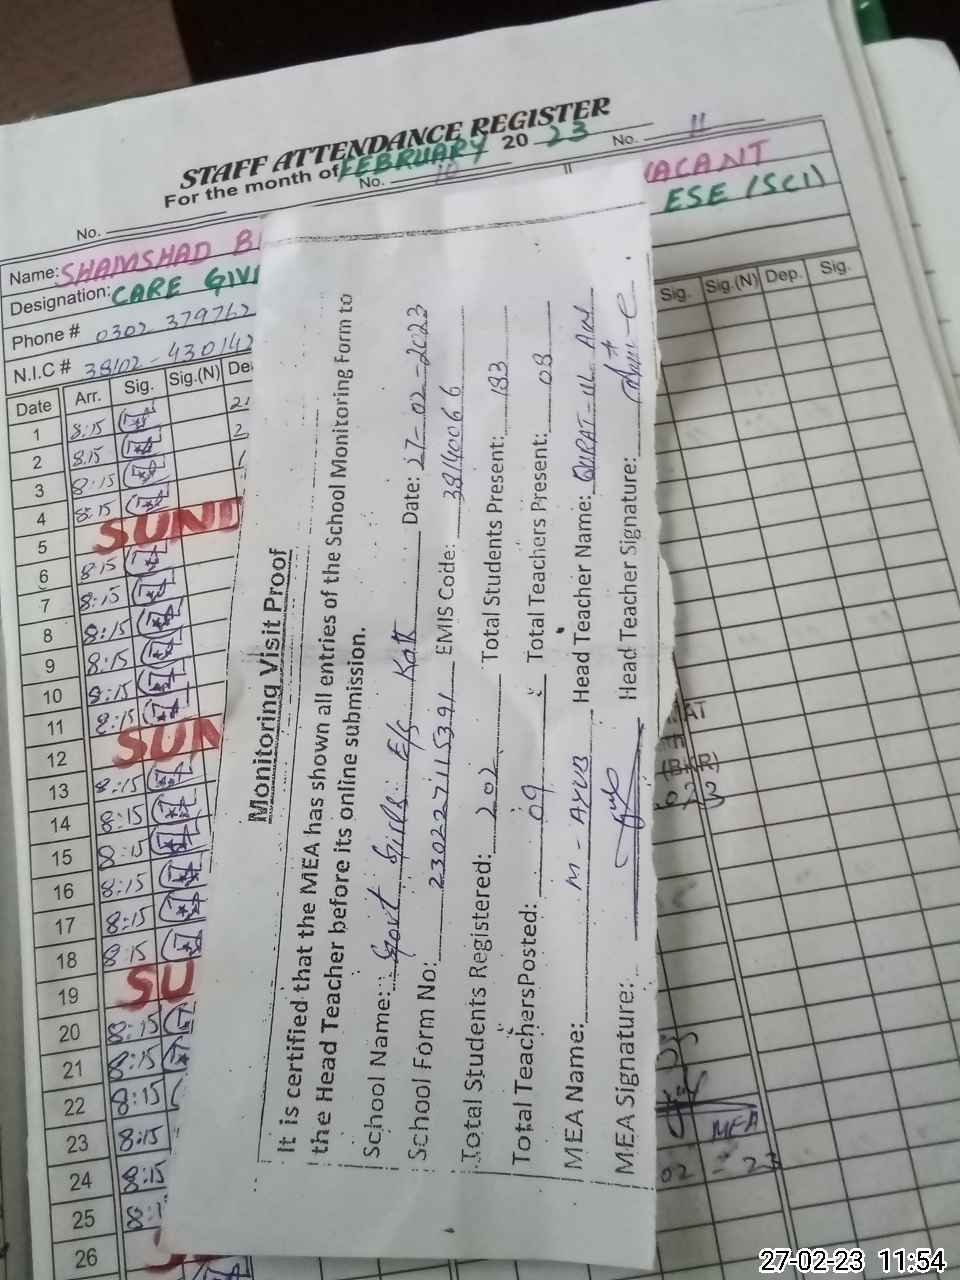 STAFF ATTENDANCE REGISTER
For the month of FEBRUARY 20 23
No.
No. 10
No. 11
Name: SHAMSHAD
VACANT
Designation: CARE
ESE (SCI)
Phone # 0302
N.I.C # 38102 - 430142
Date Arr. Sig. Sig.(N)
Sig. Sig.(N) Dep. Sig.
1 8:15
2 8:15
3 8:15
4 8:15
5 SUND
6 8:15
7 8:15
8 8:15
9 8:15
10 8:15
11 8:15
12 SUN
13 8:15
14 8:15
15 8:15
16 8:15
17 8:15
18 8:15
19 SU
20 8:15
21 8:15
22 8:15
23 8:15
24 8:15
25
26
Monitoring Visit Proof
It is certified that the MEA has shown all entries of the School Monitoring Form to
the Head Teacher before its online submission.
School Name: Govt Girls E/S Date: 27-02-2023
School Form No: EMIS Code:
Total Students Registered: 202 Total Students Present: 183
Total TeachersPosted: 09 Total Teachers Present: 08
MEA Name: M - AYUB Head Teacher Name:
MEA Signature: Head Teacher Signature:
MEA
02 - 23
27-02-23 11:54